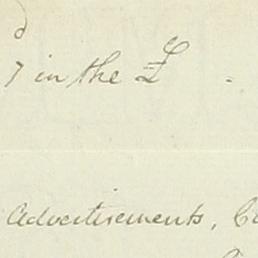 d
7 in the £ -
Advertisements, C